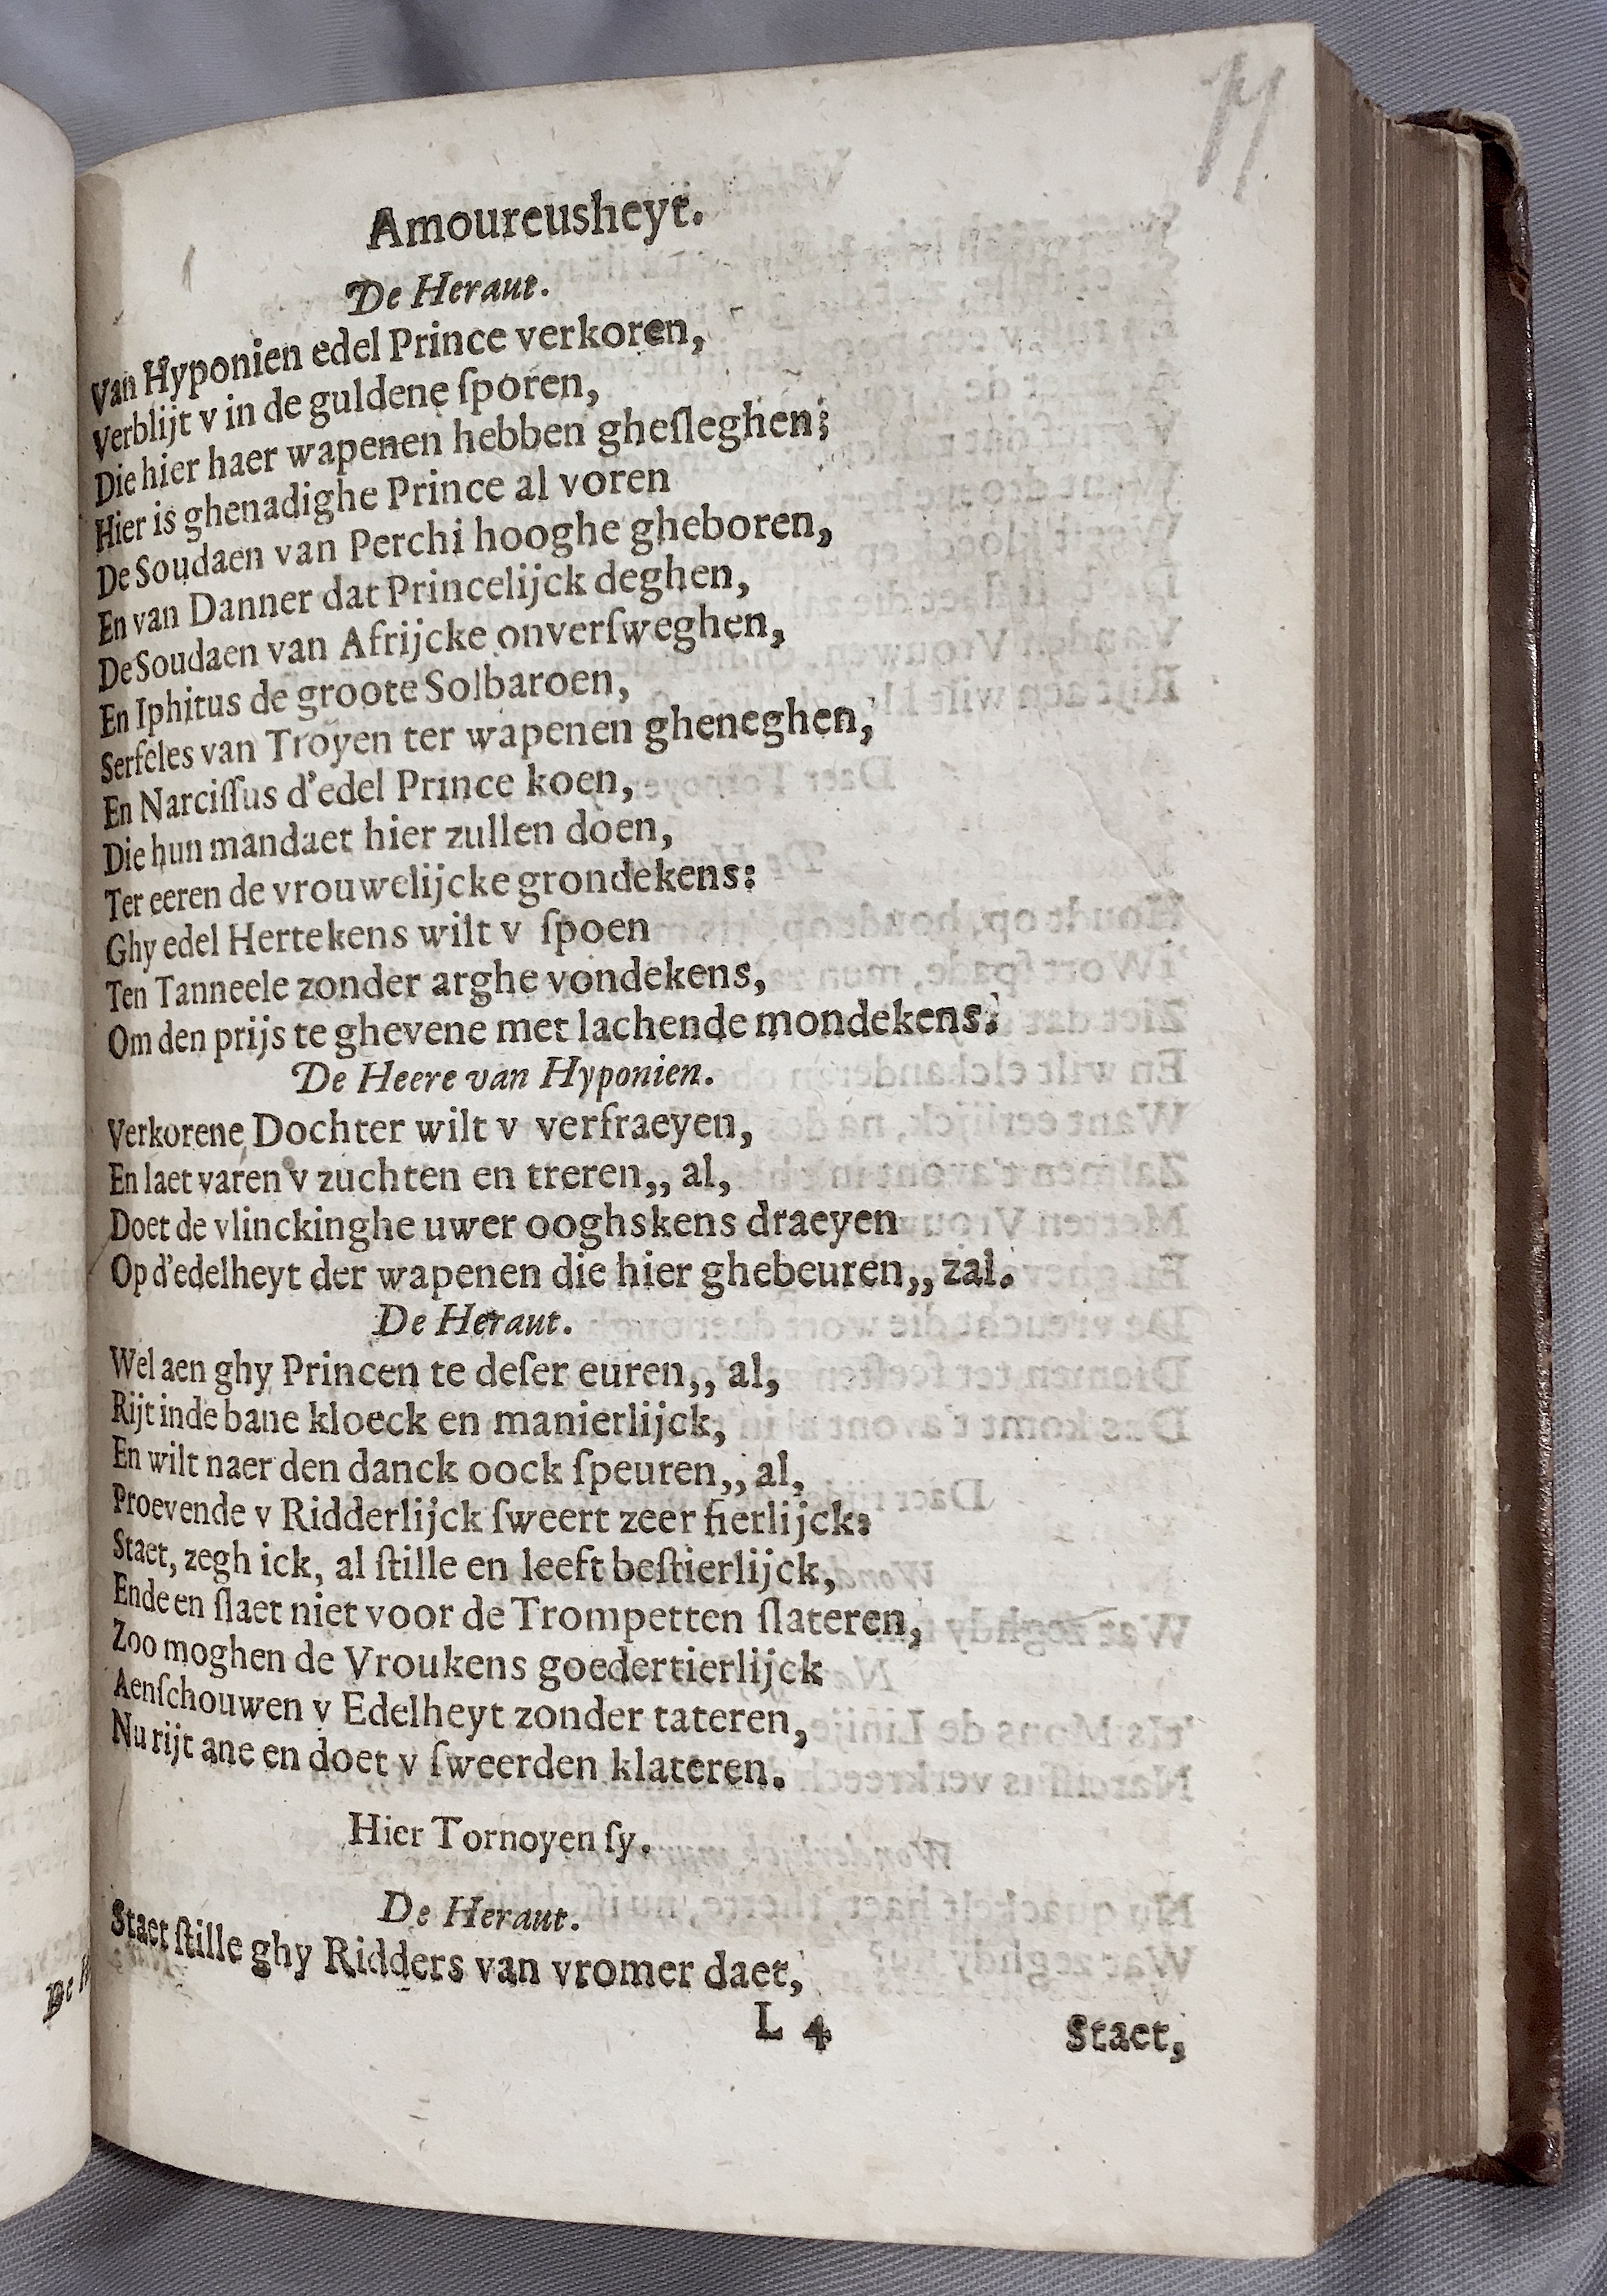 Amoureusheyt.
De Heraut.
Van Hyponien edel Prince verkoren,
Verblijt v in de guldene ſporen,
Die hier haer wapenen hebben gheſleghen;
Hier is ghenadighe Prince al voren
De Soudaen van Perchi hooghe gheboren,
En van Danner dat Princelijck deghen,
De Soudaen van Afrijcke onverſweghen,
En Iphitus de groote Solbaroen,
Serfeles van Troyen ter wapenen gheneghen,
En Narciſſus d'edel Prince koen,
Die hun mandaet hier zullen doen,
Ter eeren de vrouwelijcke grondekens:
Ghy edel Hertekens wilt v ſpoen
Ten Tanneele zonder arghe vondekens,
Om den prijs te ghevene met lachende mondekens.
De Heere van Hyponien.
Verkorene Dochter wilt v verfraeyen,
En laet varen v zuchten en treren,, al,
Doet de vlinckinghe uwer ooghskens draeyen
Op d'edelheyt der wapenen die hier ghebeuren,, zal.
De Heraut.
Wel aen ghy Princen te deſer euren,, al,
Rijt inde bane kloeck en manierlijck,
En wilt naer den danck oock ſpeuren,, al,
Proevende v Ridderlijck ſweert zeer fierlijck:
Staet, zegh ick, al ſtille en leeft beſtierlijck,
Ende en ſlaet niet voor de Trompetten ſlateren,
Zoo moghen de Vroukens goedertierlijck
Aenſchouwen v Edelheyt zonder tateren,
Nu rijt ane en doet v ſweerden klateren.
Hier Tornoyen ſy.
De Heraut.
Staet ſtille ghy Ridders van vromer daet,
L 4
Staet,